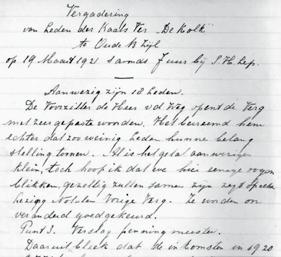 Vergadering
van leden der Kaatster "De Kolk"
te Oude B Zijl
op 19 Maart 1921 savonds 7 uur bij S. H. Lep.
Aanwezig zijn 18 leden.
De Voorzitter de Heer vd Weg opent de Verg
met zeer gepaste woorden. Het benoemd hem
echter dat zoo weinig leden hunne belang
stelling toonen. Al is het getal aanwezigen
klein, toch hoop ik dat we hier eenige oogen
blikken gezellig zullen samen zijn zegt spreker
hezigg Notulen Vorige Verg. Ze worden on
veranderd goedgekeurd.
Punt 3. Verslag penningmeester.
Daaruit bleek dat de inkomsten in 1920